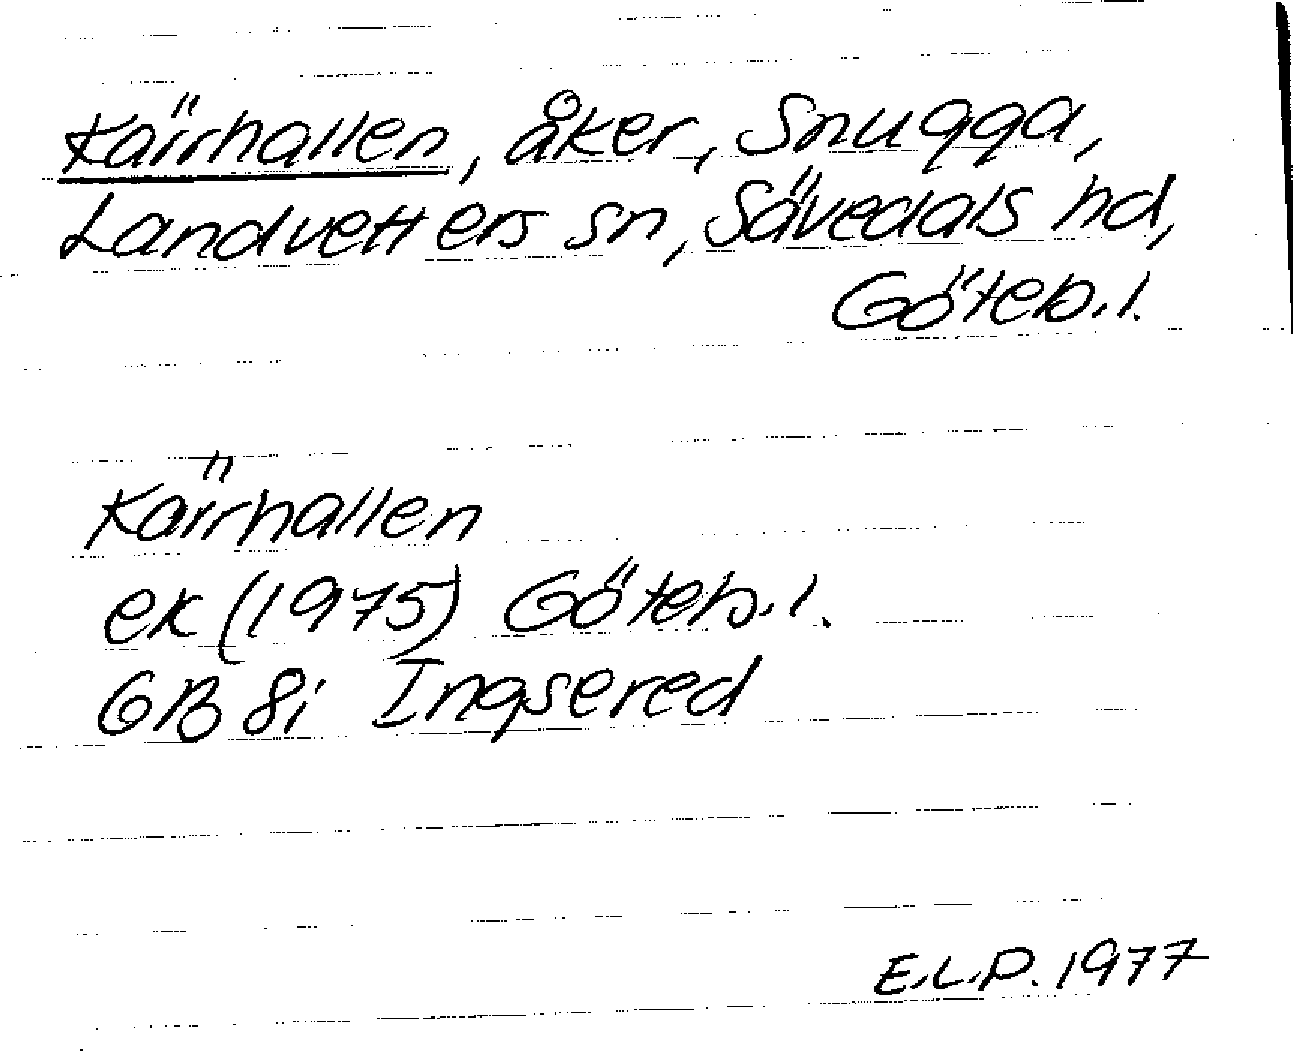 Kärrhallen, åker, Snugga,
Landvetters sn, Sävedals hd,
Göteb. l.
Kärrhallen
ek (1975) Göteb. l.
GB 8i Ingsered
E.L.P. 1977